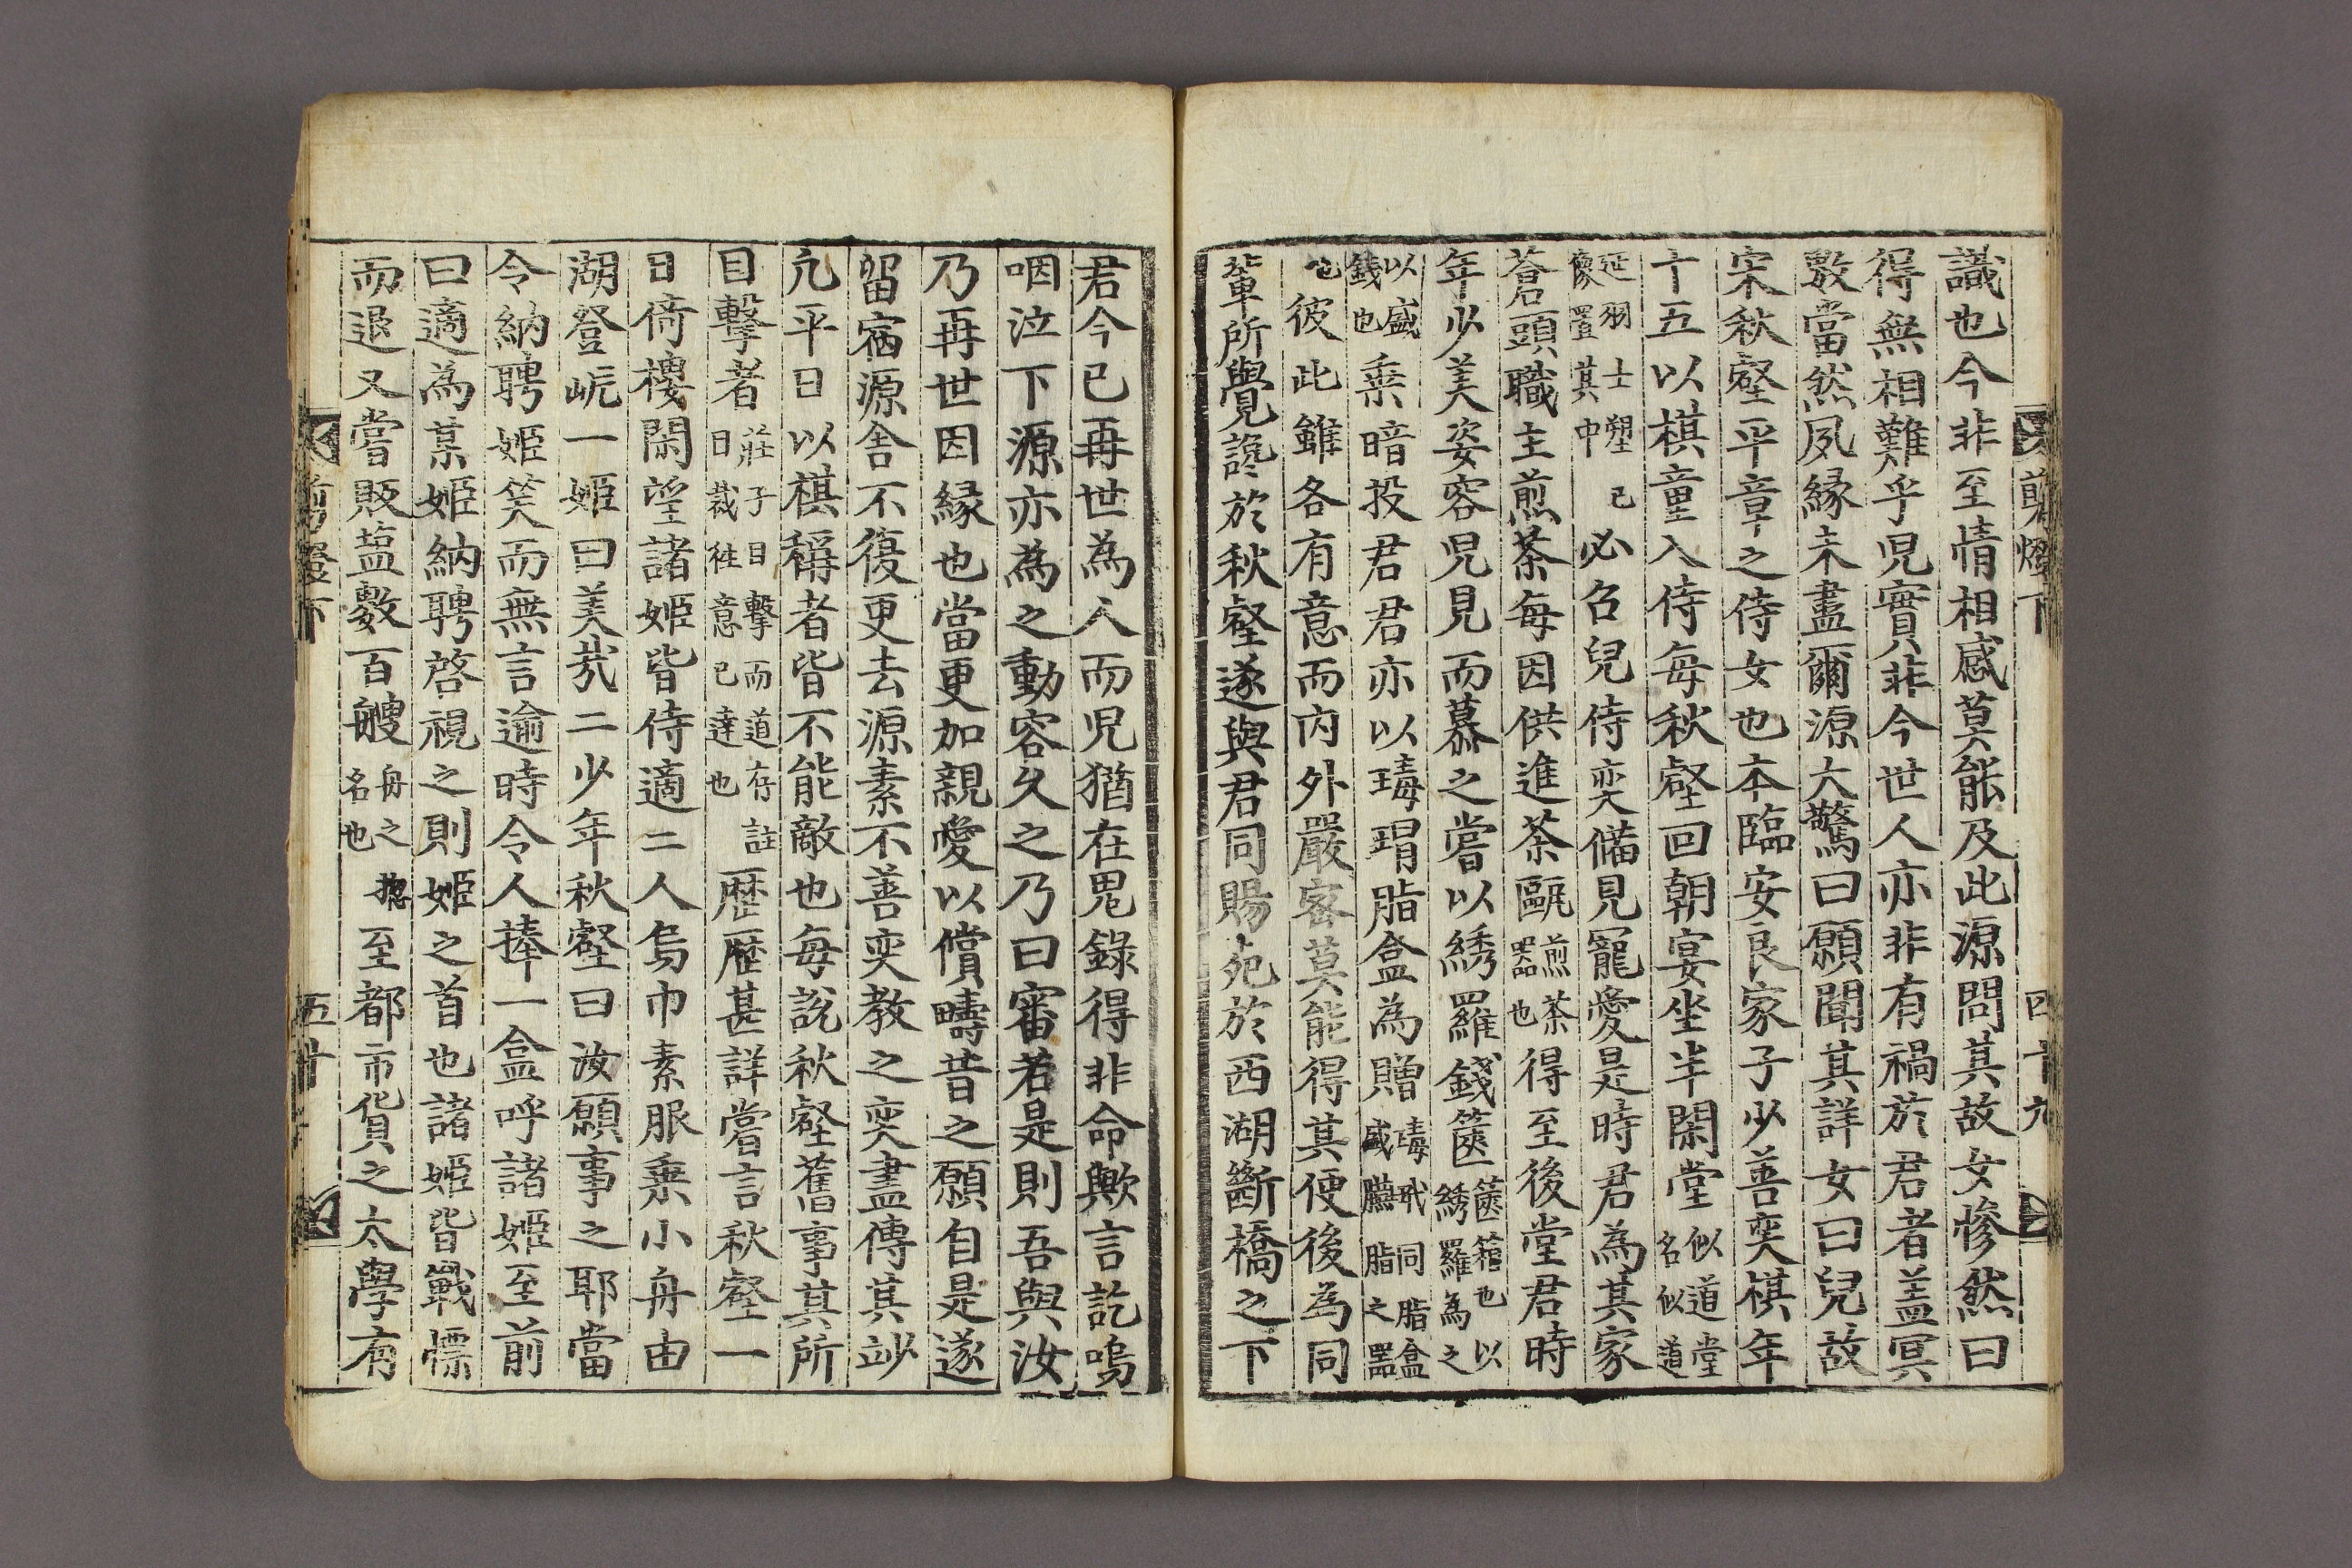 剪燈下 四十九
識也今非至情相感莫能及此源問其故女慘然曰
得無相難乎兒實非今世人亦非有禍於君者盖冥
數當然夙緣未盡爾源大驚曰願聞其詳女曰兒故
宋秋壑平章之侍女也本臨安良家子少善奕棋年
十五以棋童入侍每秋壑回朝宴坐半閑堂似道堂名似道
延羽士塑己像置其中必召兒侍奕備見寵愛是時君為其家
蒼頭職主煎茶每因供進茶甌煎茶器也得至後堂君時
年少美姿容兒見而慕之嘗以綉羅錢篋篋箱也以綉羅為之
以盛錢也乗暗投君君亦以瑇瑁脂盒為贈瑇玳同脂盒盛臙脂之器
也彼此雖各有意而內外嚴密莫能得其便後為同
輩所覺讒於秋壑遂與君同賜死於西湖斷橋之下
君今已再世為人而兒猶在鬼錄得非命歟言訖嗚
咽泣下源亦為之動容久之乃曰審若是則吾與汝
乃再世因緣也當更加親愛以償疇昔之願自是遂
留宿源舍不復更去源素不善奕教之奕盡傳其妙
凡平日以棋稱者皆不能敵也每說秋壑舊事其所
目擊者莊子目擊而道存註曰裁徃意已達也歷歷甚詳嘗言秋壑一
日倚樓閑望諸姬皆侍適二人烏巾素服乗小舟由
湖登岸一姬曰美哉二少年秋壑曰汝願事之耶當
令納聘姬笑而無言逾時令人捧一盒呼諸姬至前
曰適為某姬納聘啓視之則姬之首也諸姬皆戰慄
而退又嘗販塩數百艘舟之揔名也至都市貨之太學有
剪燈下 五十